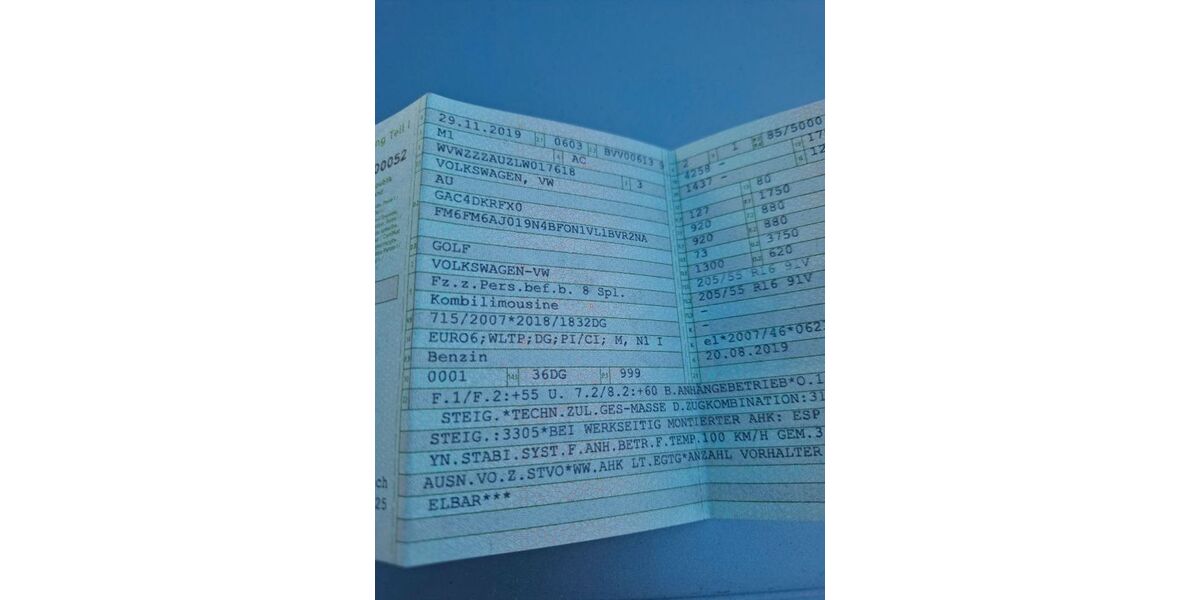 ng Teil I
00052
29.11.2019 0603 BVV00613 9
M1 AC
WVWZZZAUZLW017618
VOLKSWAGEN, VW 3
AU
GAC4DKRFX0
FM6FM6AJ019N4BFON1VL1BVR2NA
GOLF
VOLKSWAGEN-VW
Fz.z.Pers.bef.b. 8 Spl.
Kombilimousine
715/2007*2018/1832DG
EURO6;WLTP;DG;PI/CI; M, N1 I
Benzin
0001 36DG 999
2 1 85/5000
4258 - 17
1437 - 12
80
127 1750
920 880
920 880
73 3750
1300 620
205/55 R16 91V
205/55 R16 91V
-
-
e1*2007/46*062
20.08.2019
F.1/F.2:+55 U. 7.2/8.2:+60 B.ANHÄNGEBETRIEB*O.1
STEIG.*TECHN.ZUL.GES-MASSE D.ZUGKOMBINATION:31
STEIG.:3305*BEI WERKSEITIG MONTIERTER AHK: ESP
YN.STABI.SYST.F.ANH.BETR.F.TEMP.100 KM/H GEM.3
AUSN.VO.Z.STVO*WW.AHK LT.EGTG*ANZAHL VORHALTER
ELBAR***
ch
25